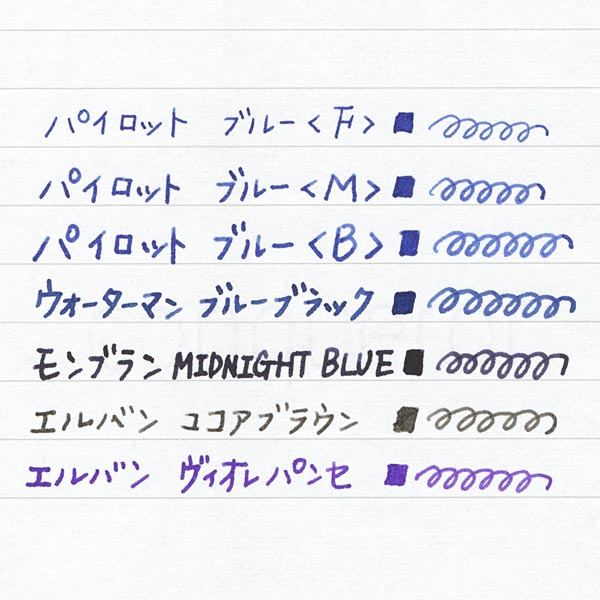 パイロット ブルー<F>
パイロット ブルー<M>
パイロット ブルー<B>
ウォーターマン ブルーブラック
モンブラン MIDNIGHT BLUE
エルバン ココアブラウン
エルバン ヴィオレパンセ